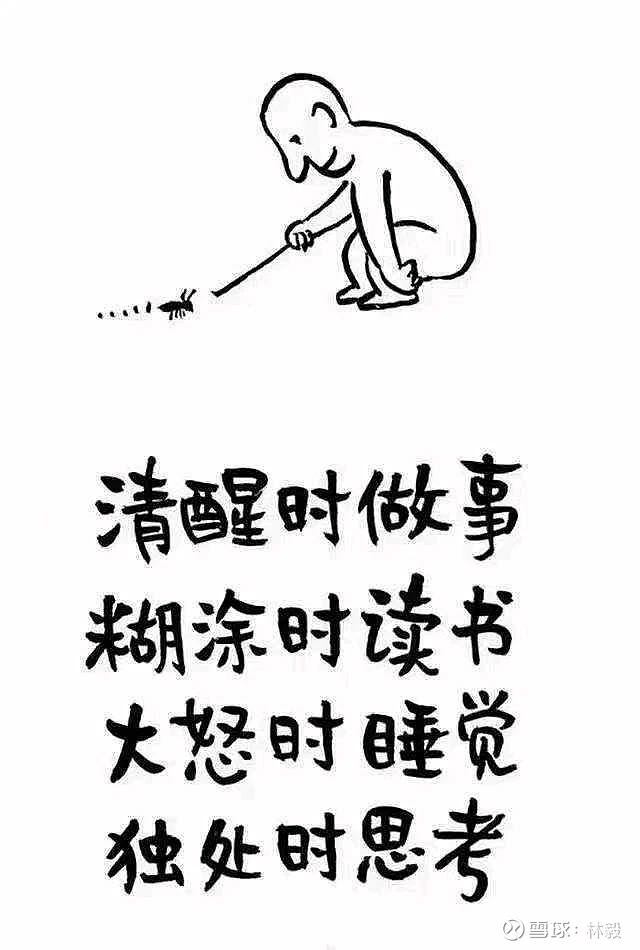 清醒时做事
糊涂时读书
大怒时睡觉
独处时思考
雪球：林毅